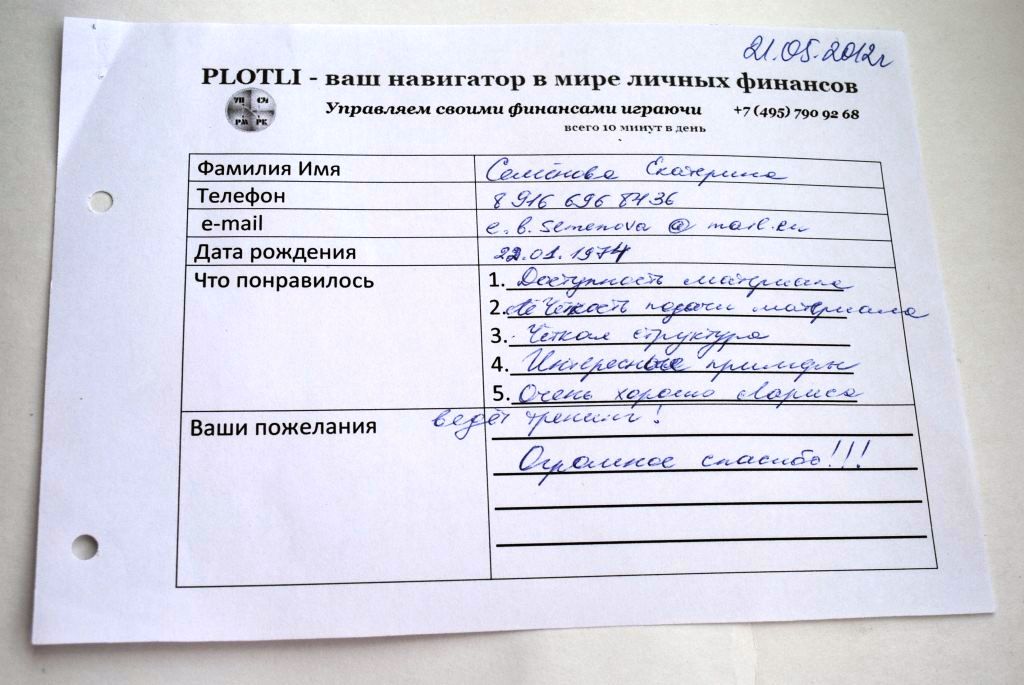 21.05.2012г
PLOTLI - ваш навигатор в мире личных финансов
УП СЧ
РМ РК
Управляем своими финансами играючи +7 (495) 790 92 68
всего 10 минут в день
Фамилия Имя Семёнова Екатерина
Телефон 8 916 696 8436
e-mail e.b.semenova@mail.ru
Дата рождения 22.01.1974
Что понравилось 1. Доступность материала
2. Чёткость подачи материала
3. Чёткая структура
4. Интересные примеры
5. Очень хорошо Лариса
ведёт тренинг!
Ваши пожелания
Огромное спасибо!!!